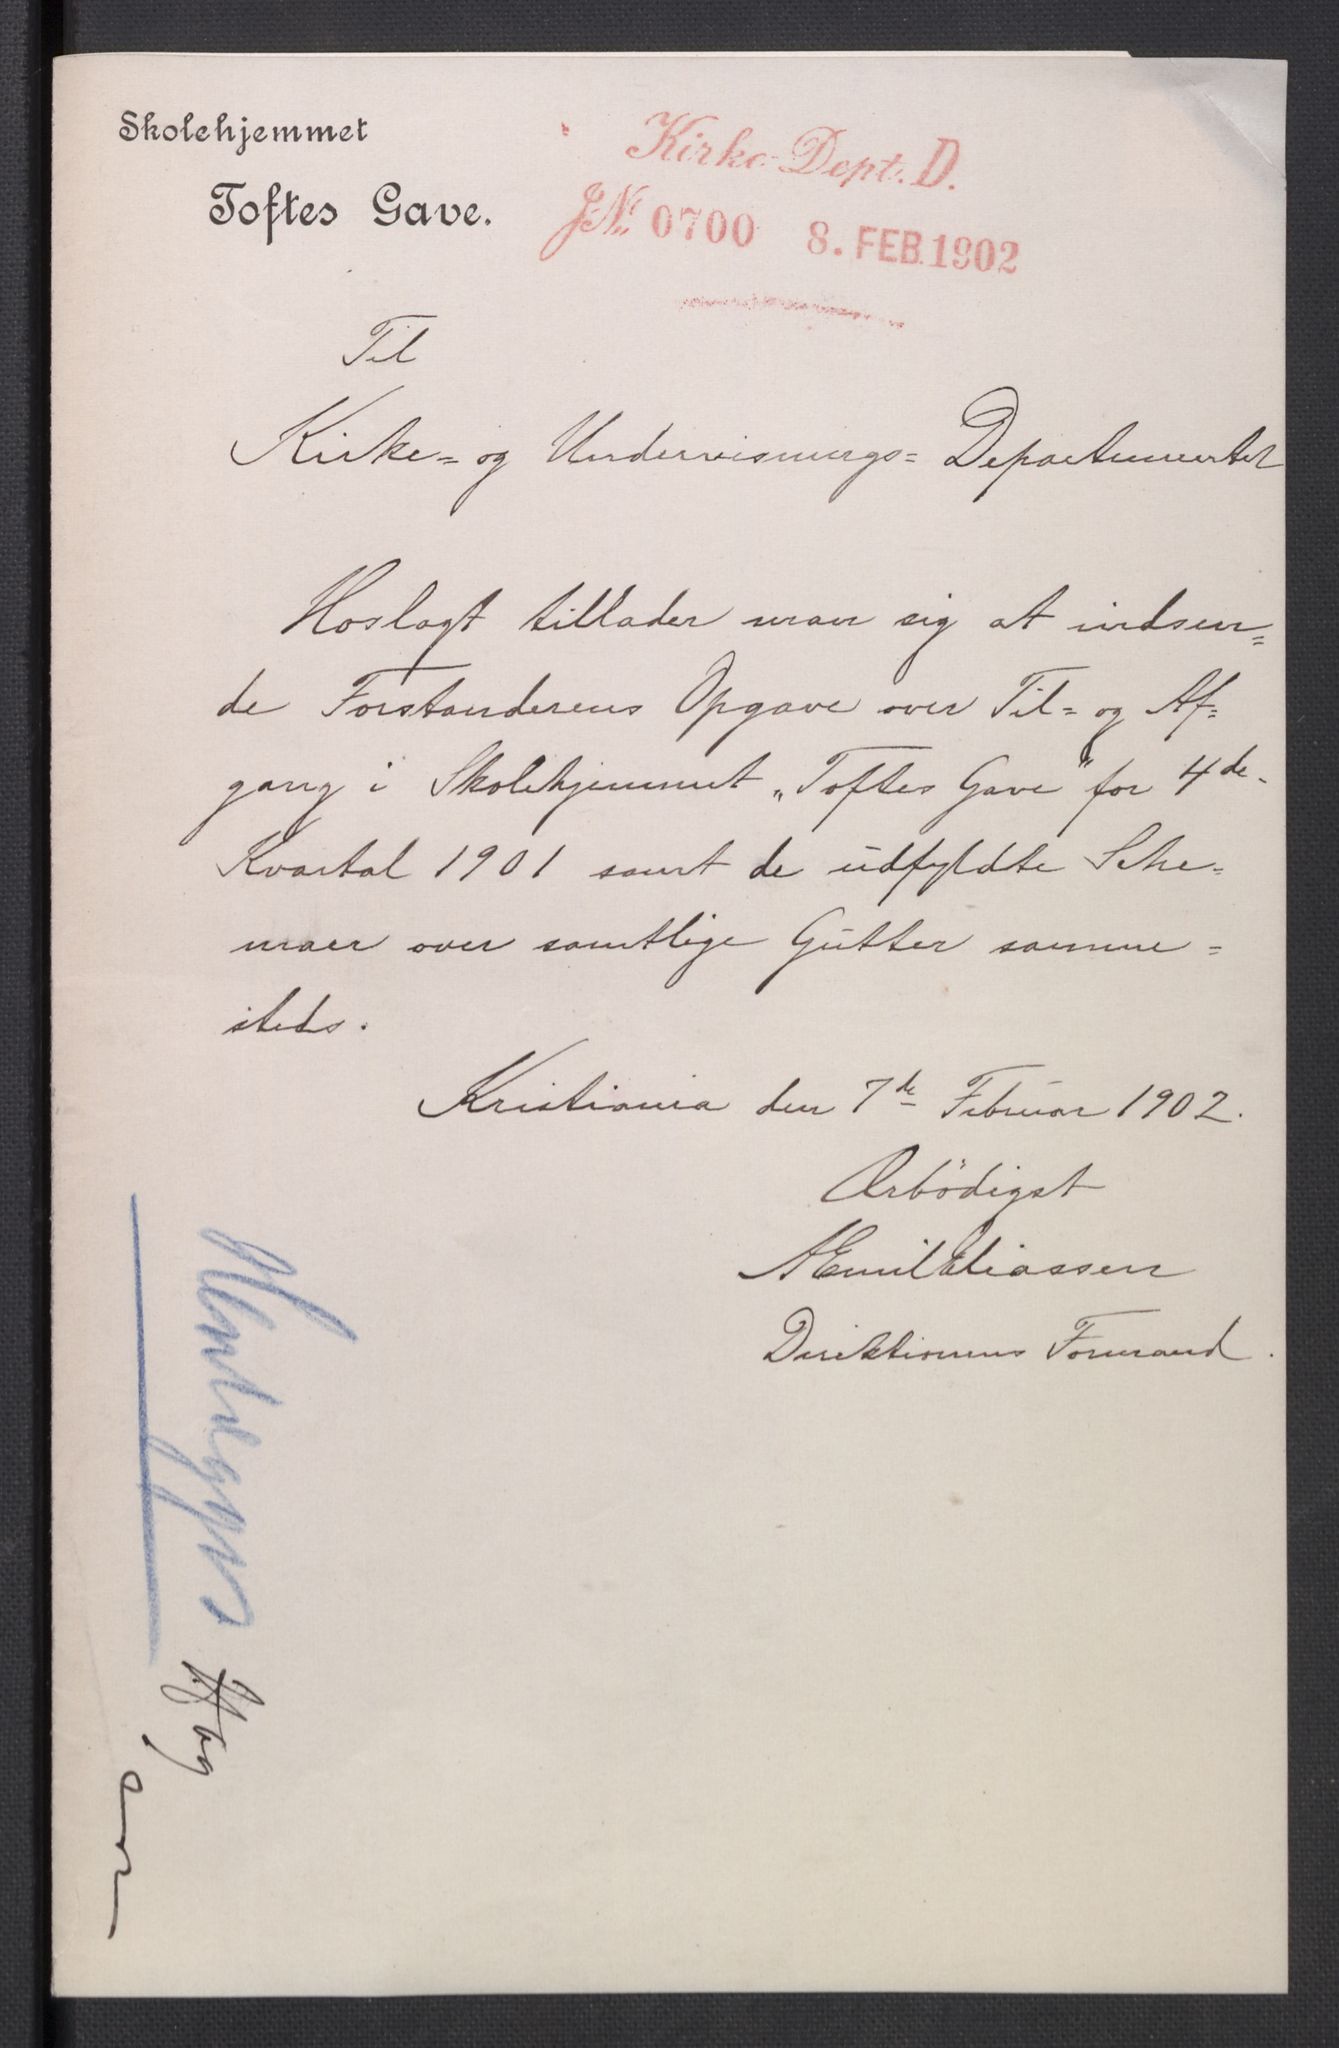 Skolehjemmet
Toftes Gave.
Kirke-Dept. D.
JNo. 0700 8. FEB. 1902
Til
Kirke= og Undervisnings= Departementet
Hoslagt tillader man sig at indsen=
de Forstanderens Opgave over Til= og Af=
gang i Skolehjemmet „Toftes Gave" for 4de
Kvartal 1901 samt de udfyldte Sche=
maer over samtlige Gutter samme=
steds.
Kristiania den 7de Februar 1902.
Ærbödigst
AEmilEliassen
Direktionens Formand.